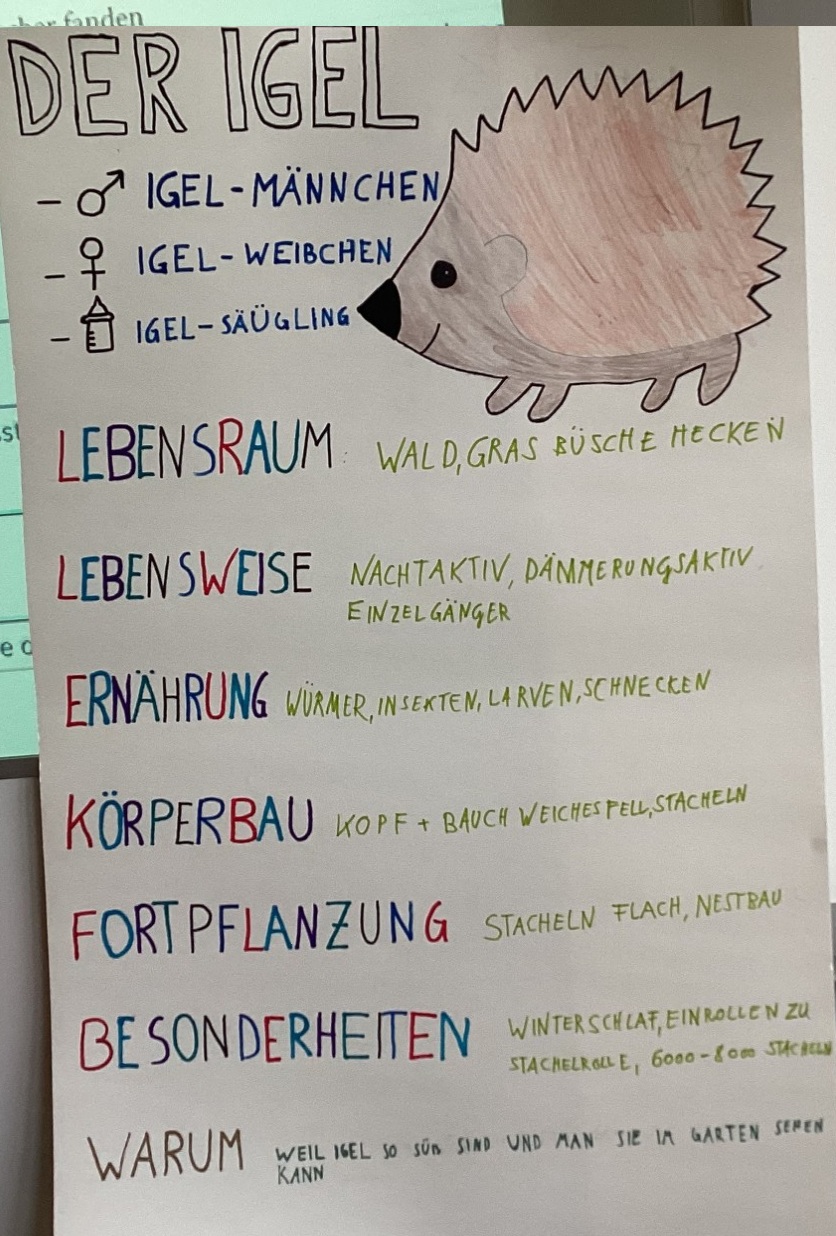 fanden
DER IGEL
- ♂ IGEL-MÄNNCHEN
- ♀ IGEL-WEIBCHEN
- IGEL-SÄÜGLING
LEBENSRAUM: WALD, GRAS BÜSCHE HECKEN
LEBENSWEISE NACHTAKTIV, DÄMMERUNGSAKTIV
EINZELGÄNGER
ERNÄHRUNG WÜRMER, INSEKTEN, LARVEN, SCHNECKEN
KÖRPERBAU KOPF + BAUCH WEICHES FELL, STACHELN
FORTPFLANZUNG STACHELN FLACH, NESTBAU
BESONDERHEITEN WINTERSCHLAF, EINROLLEN ZU
STACHELROLLE, 6000-8000 STACHELN
WARUM WEIL IGEL SO SÜß SIND UND MAN SIE IM GARTEN SEHEN
KANN